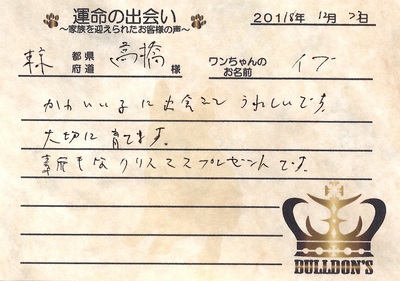 運命の出会い
～家族を迎えられたお客様の声～
2018年 12月 7日
東京 都道府県 高橋 様 ワンちゃんのお名前 イブ
かわいい子に出会えて うれしいです。
大切に育てます。
素敵なクリスマスプレゼントです。
BULLDON'S